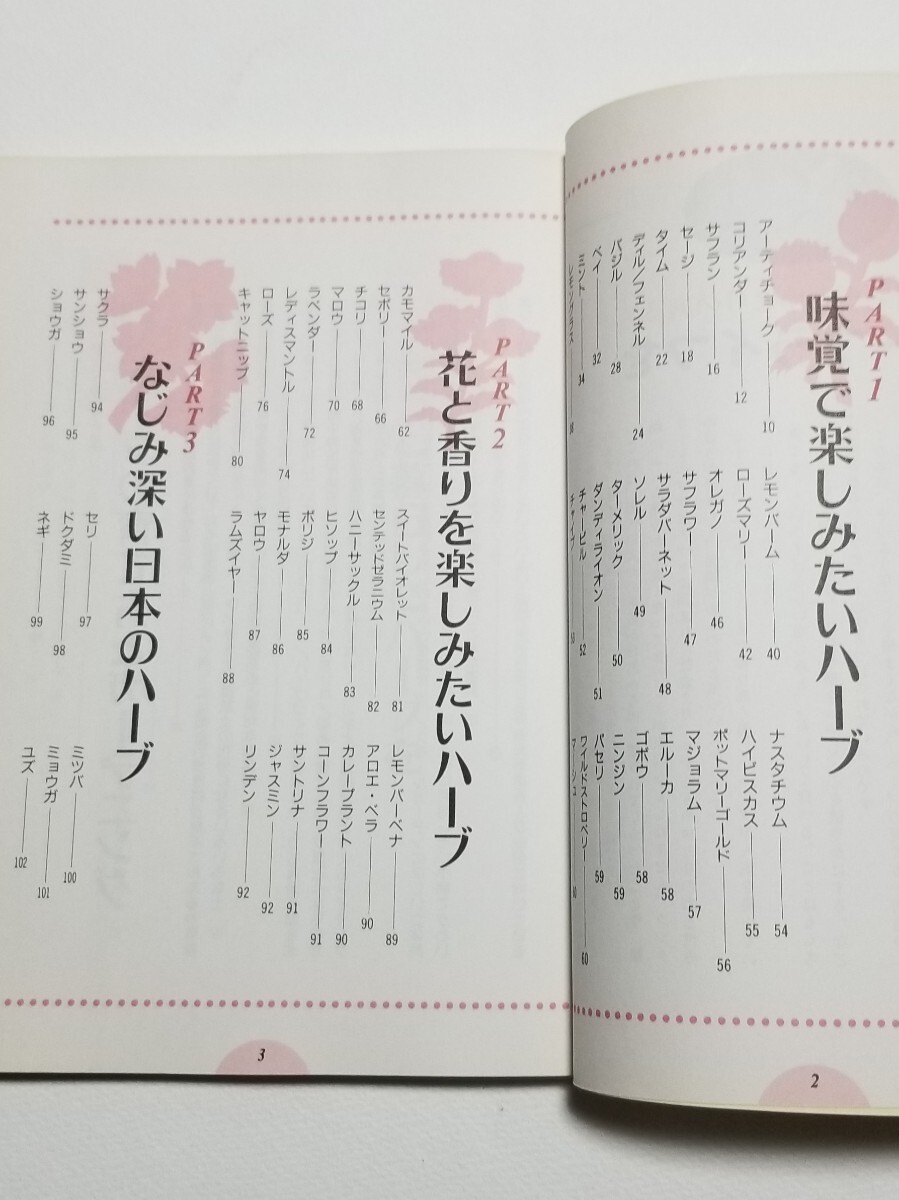 PART1
味覚で楽しみたいハーブ
アーティチョーク——10
コリアンダー——12
サフラン——16
セージ——18
タイム——22
ディル／フェンネル——24
バジル——28
ベイ——32
ミント——34
レモングラス
レモンバーム——40
ローズマリー——42
オレガノ——46
サフラワー——47
サラダバーネット——48
ソレル——49
ターメリック——50
ダンディライオン——51
チャービル——52
チャイブ
ナスタチウム——54
ハイビスカス——55
ポットマリーゴールド——56
マジョラム——57
エルーカ——58
ゴボウ——58
ニンジン——59
パセリ——59
ワイルドストロベリー——60
2
PART2
花と香りを楽しみたいハーブ
カモマイル——62
セボリー——66
チコリ——68
マロウ——70
ラベンダー——72
レディスマントル——74
ローズ——76
キャットニップ——80
スイートバイオレット——81
センテッドゼラニウム——82
ハニーサックル——83
ヒソップ——84
ボリジ——85
モナルダ——86
ヤロウ——87
ラムズイヤー——88
レモンバーベナ——89
アロエ・ベラ——90
カレープラント——90
コーンフラワー——91
サントリナ——91
ジャスミン——92
リンデン——92
PART3
なじみ深い日本のハーブ
サクラ——94
サンショウ——95
ショウガ——96
セリ——97
ドクダミ——98
ネギ——99
ミツバ——100
ミョウガ——101
ユズ——102
3